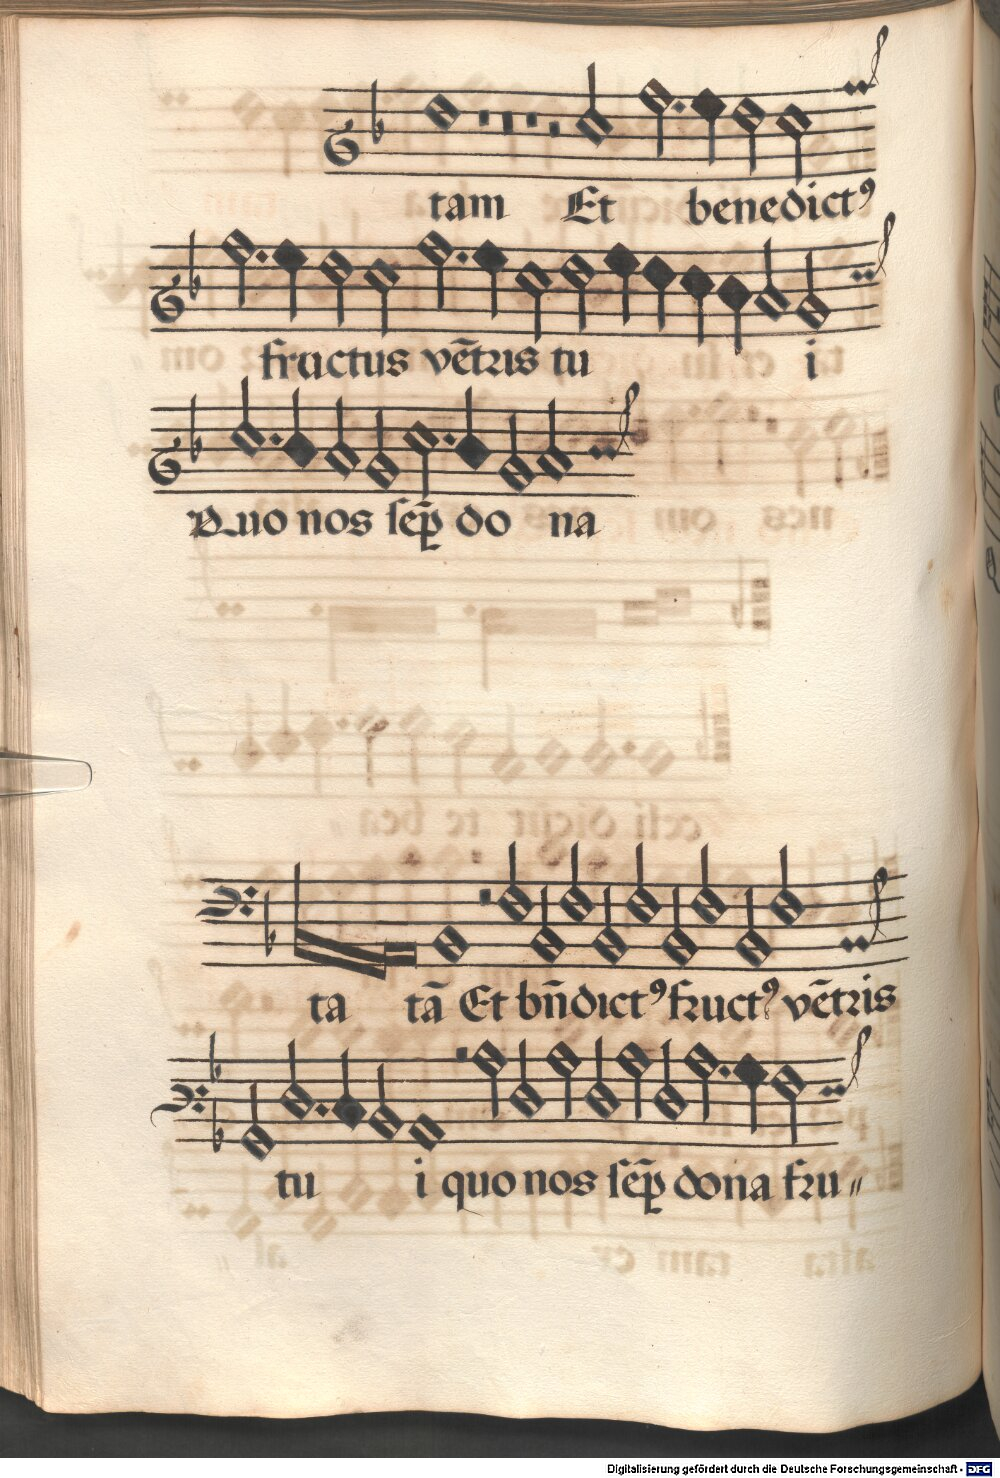 tam Et benedictꝰ
fructus vẽtris tu i
Quo nos sep̃ do na
ta tã Et bñdictꝰ fructꝰ vẽtris
tu i quo nos sep̃ dona fru〃
Digitalisierung gefördert durch die Deutsche Forschungsgemeinschaft - DFG